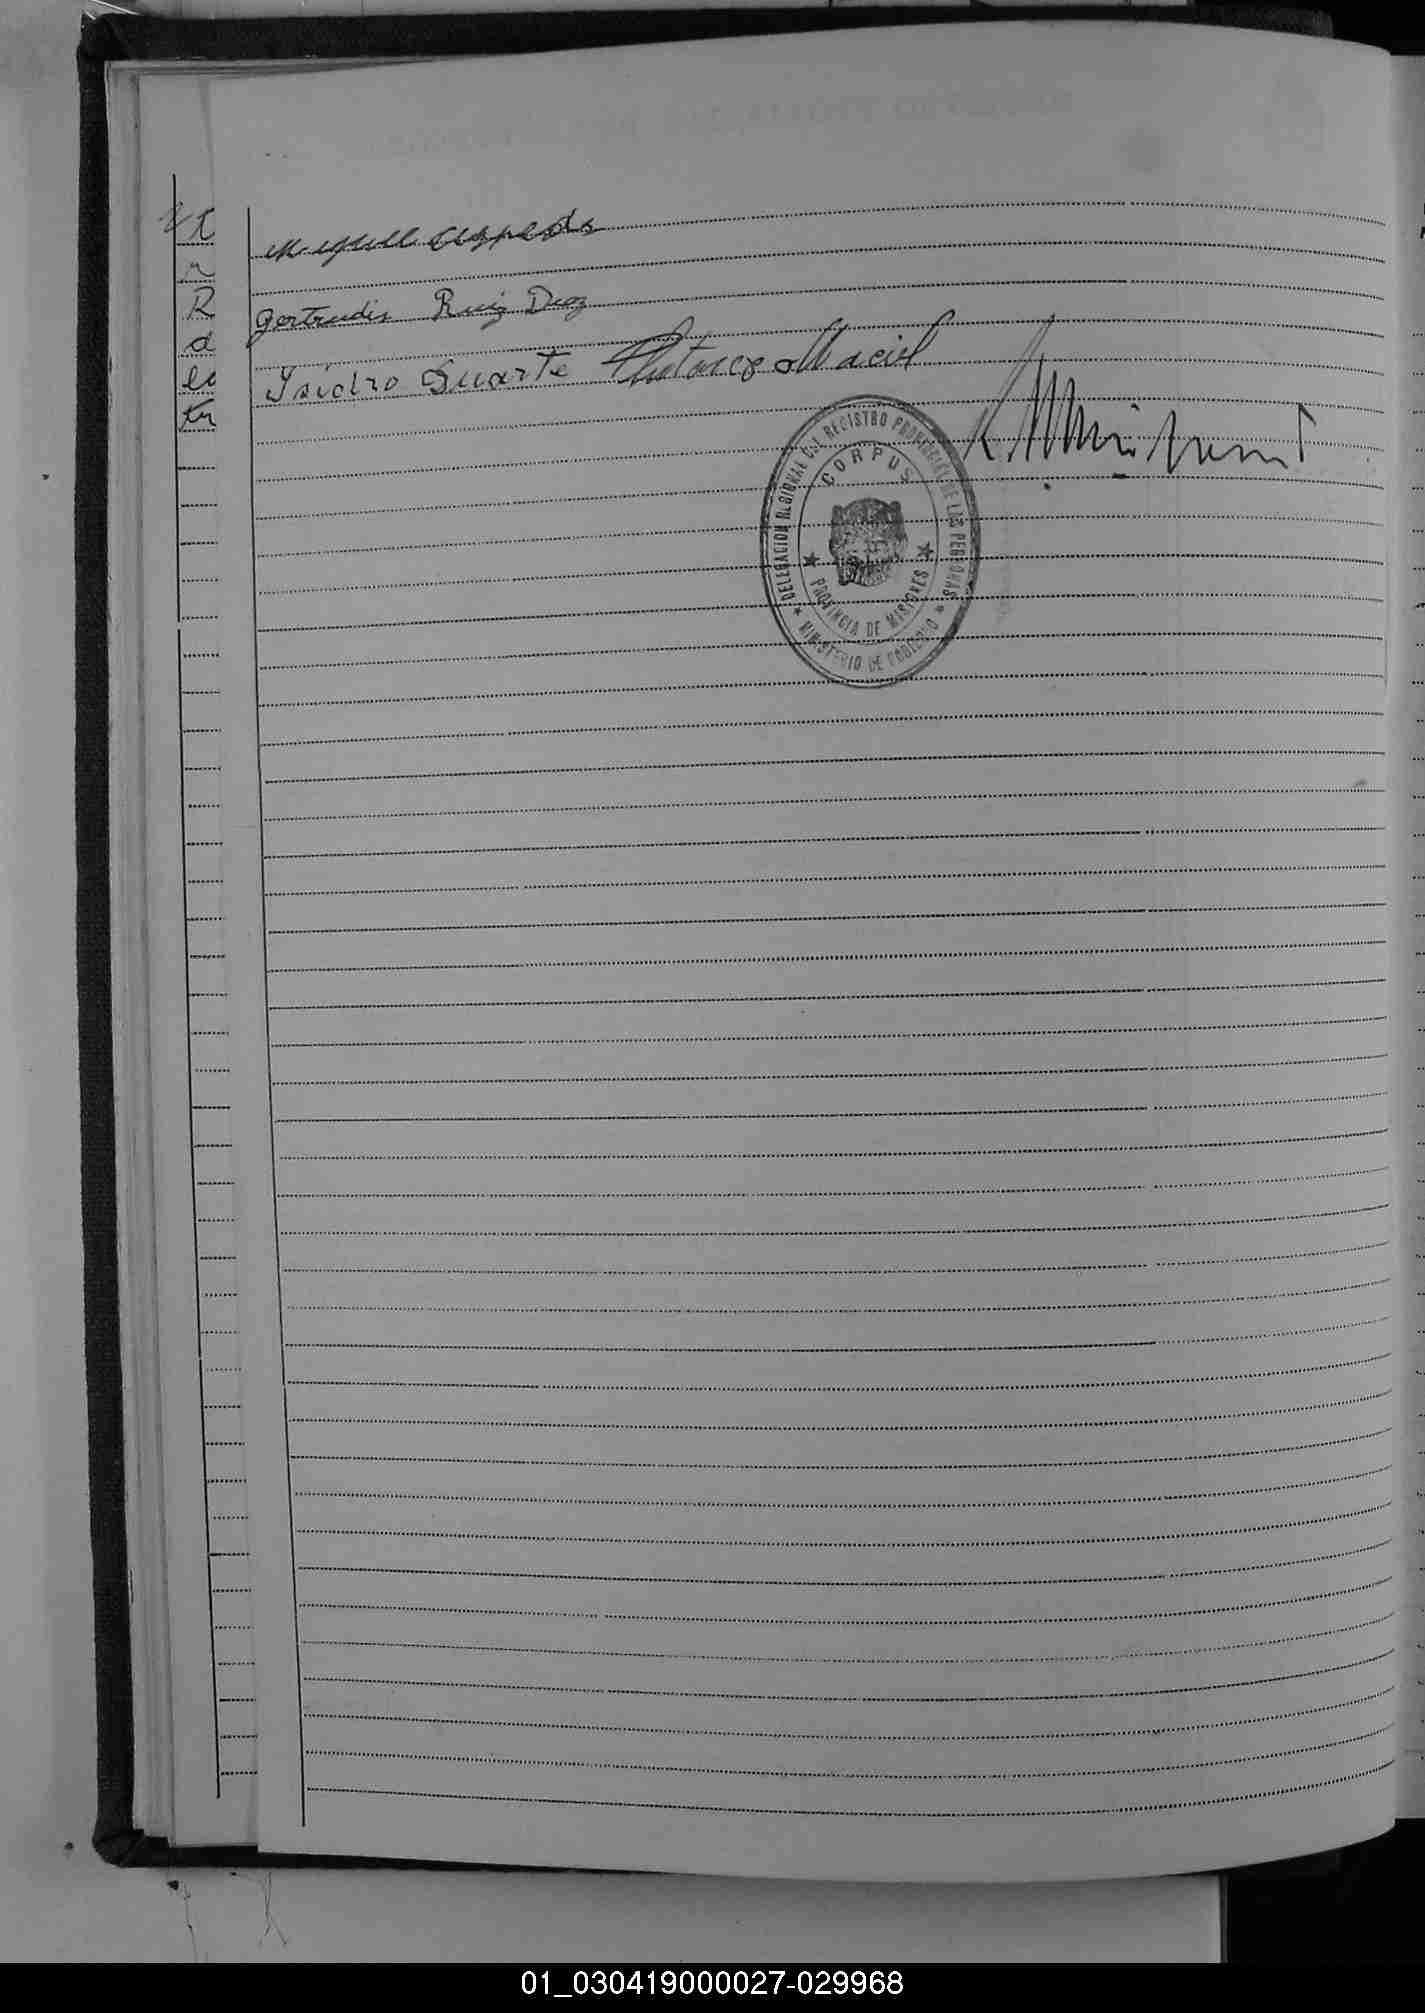 Miguel Cespedes
Gertrudis Ruiz Diaz
Isidro Duarte Maciel
DELEGACION REGIONAL DEL REGISTRO PROVINCIAL DE LAS PERSONAS
CORPUS
PROVINCIA DE MISIONES
MINISTERIO DE GOBIERNO
R
d
01_030419000027-029968